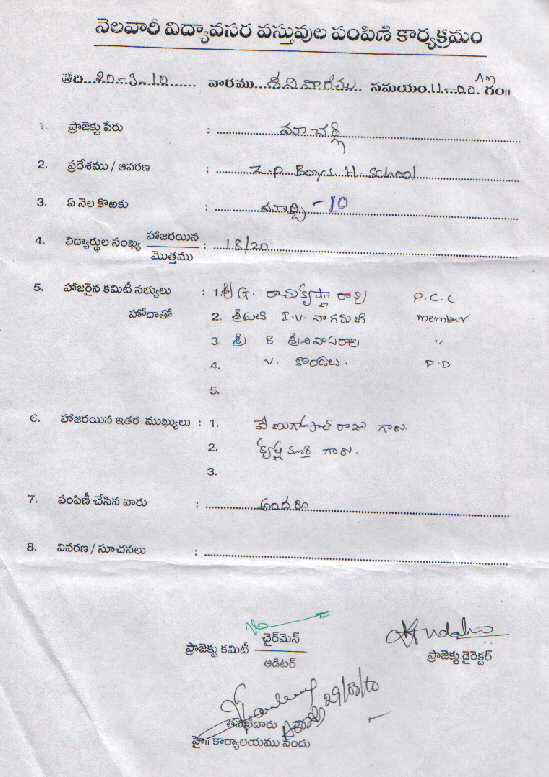 నెలవారీ విద్యావసర వస్తువుల పంపిణి కార్యక్రమం
తేది 20-3-10 వారము శనివారము సమయం 11-00 గం॥
1. ప్రాజెక్టు పేరు : మాచర్ల
2. ప్రదేశము / ఆవరణ : Z.P. Boys H. School
3. ఏ నెల కొఱకు : మార్చి - 10
4. విద్యార్థుల సంఖ్య హాజరయిన / మొత్తము : 18/20
5. హాజరైన కమిటీ సభ్యులు : 1. శ్రీ G. రామకృష్ణా రావు P.C.C
హోదాతో 2. శ్రీమతి I.V. నాగమణి member
3. శ్రీ B శ్రీనివాసరావు "
4. V. P.D
5.
6. హాజరయిన ఇతర ముఖ్యులు : 1. వేణుగోపాల్ రాజు గారు.
2. గారు.
3.
7. పంపిణీ చేసిన వారు : అందరు
8. వివరణ / సూచనలు :
ప్రాజెక్టు కమిటీ ఛైర్‌మెన్ / ఆడిటర్
ప్రాజెక్టు డైరెక్టర్
29/03/10
హై॥ కార్యాలయము నందు